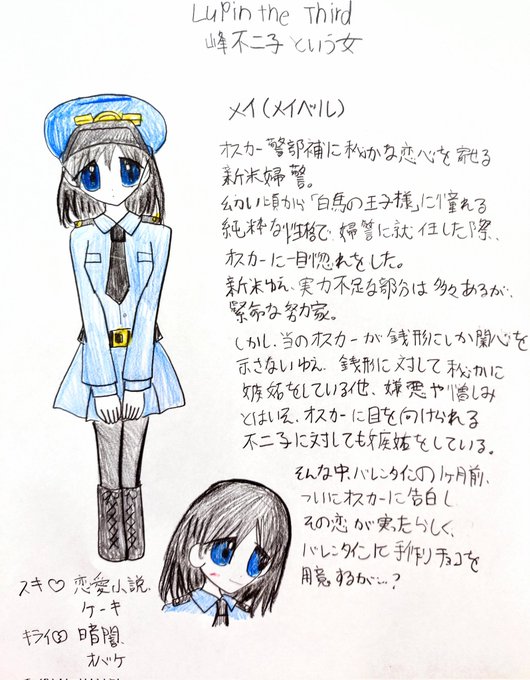 Lupin the Third
峰不二子という女
メイ(メイベル)
オスカー警部補に秘かな恋心を寄せる
新米婦警。
幼い頃から「白馬の王子様」に憧れる
純粋な性格で、婦警に就任した際、
オスカーに一目惚れをした。
新米ゆえ、実力不足な部分は多々あるが、
緊命な努力家。
しかし、当のオスカーが銭形にしか関心を
示さないゆえ、銭形に対して秘かに
嫉妬をしている他、嫌悪や憎しみ
とはいえ、オスカーに目を向けられる
不二子に対しても嫉妬をしている。
そんな中、バレンタインの1ヶ月前、
ついにオスカーに告白し
その恋が実ったらしく、
バレンタインに手作りチョコを
用意するが…?
スキ♡ 恋愛小説、
ケーキ
キライ 暗闇、
オバケ